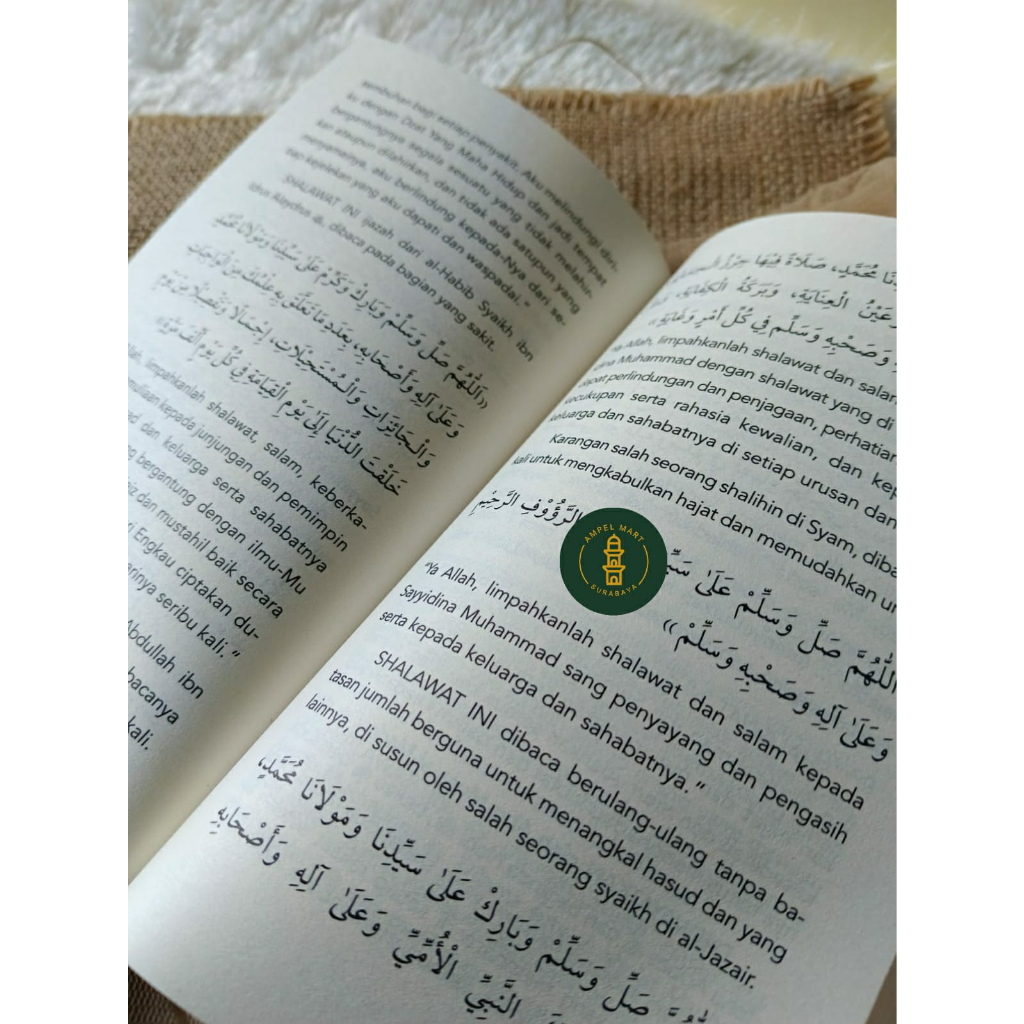 sembuhan bagi setiap penyakit. Aku melindungi diri-
ku dengan Dzat Yang Maha Hidup dan jadi tempat
bergantungnya segala sesuatu yang tidak melahir-
kan ataupun dilahirkan, dan tidak ada satupun yang
menyamainya, aku berlindung kepada-Nya dari se-
tiap kejelekan yang aku dapati dan waspadai."
SHALAWAT INI ijazah dari al-Habib Syaikh ibn
Idrus Alaydrus dibaca pada bagian yang sakit.
«اَللّٰهُمَّ صَلِّ وَسَلِّمْ وَبَارِكْ وَكَرِّمْ عَلَىٰ سَيِّدِنَا وَمَوْلَانَا مُحَمَّدٍ
وَعَلَىٰ آلِهِ وَأَصْحَابِهِ، بِعَدَدِ مَا تَعَلَّقَ بِهِ عِلْمُكَ مِنَ الْوَاجِبَاتِ
وَالْجَائِزَاتِ وَالْمُسْتَحِيْلَاتِ، إِجْمَالًا وَتَفْصِيْلًا مِنْ يَوْمِ
خَلَقْتَ الدُّنْيَا إِلَىٰ يَوْمِ الْقِيَامَةِ فِي كُلِّ يَوْمٍ أَلْفَ مَرَّةٍ»
limpahkanlah shalawat, salam, keberka-
muliaan kepada junjungan dan pemimpin
dan keluarga serta sahabatnya
bergantung dengan ilmu-Mu
dan mustahil baik secara
Engkau ciptakan du-
seribu kali."
Abdullah ibn
bacanya
kali.
مُحَمَّدٍ، صَلَاةً فِيْهَا حِرْزُ
الْعِنَايَةِ، وَبَرَكَةُ الْكِفَايَةِ،
وَصَحْبِهِ وَسَلِّم فِي كُلِّ أَمْرٍ وَغَايَةٍ»
Allah, limpahkanlah shalawat dan salam
Muhammad dengan shalawat yang di
dapat perlindungan dan penjagaan, perhatian
kecukupan serta rahasia kewalian, dan
keluarga dan sahabatnya di setiap urusan dan
Karangan salah seorang shalihin di Syam, diba
kali untuk mengkabulkan hajat dan memudahkan
صَلِّ وَسَلِّمْ عَلَىٰ الرَّؤُوْفِ الرَّحِيْمِ
وَعَلَىٰ آلِهِ وَصَحْبِهِ وَسَلِّمْ»
AMPEL MART
SURABAYA
"Ya Allah, limpahkanlah shalawat dan salam kepada
Sayyidina Muhammad sang penyayang dan pengasih
serta kepada keluarga dan sahabatnya."
SHALAWAT INI dibaca berulang-ulang tanpa ba-
tasan jumlah berguna untuk menangkal hasud dan yang
lainnya, di susun oleh salah seorang syaikh di al-Jazair.
صَلِّ وَسَلِّمْ وَبَارِكْ عَلَىٰ سَيِّدِنَا وَمَوْلَانَا مُحَمَّدٍ،
النَّبِيِّ الْأُمِّيِّ وَعَلَىٰ آلِهِ وَأَصْحَابِهِ